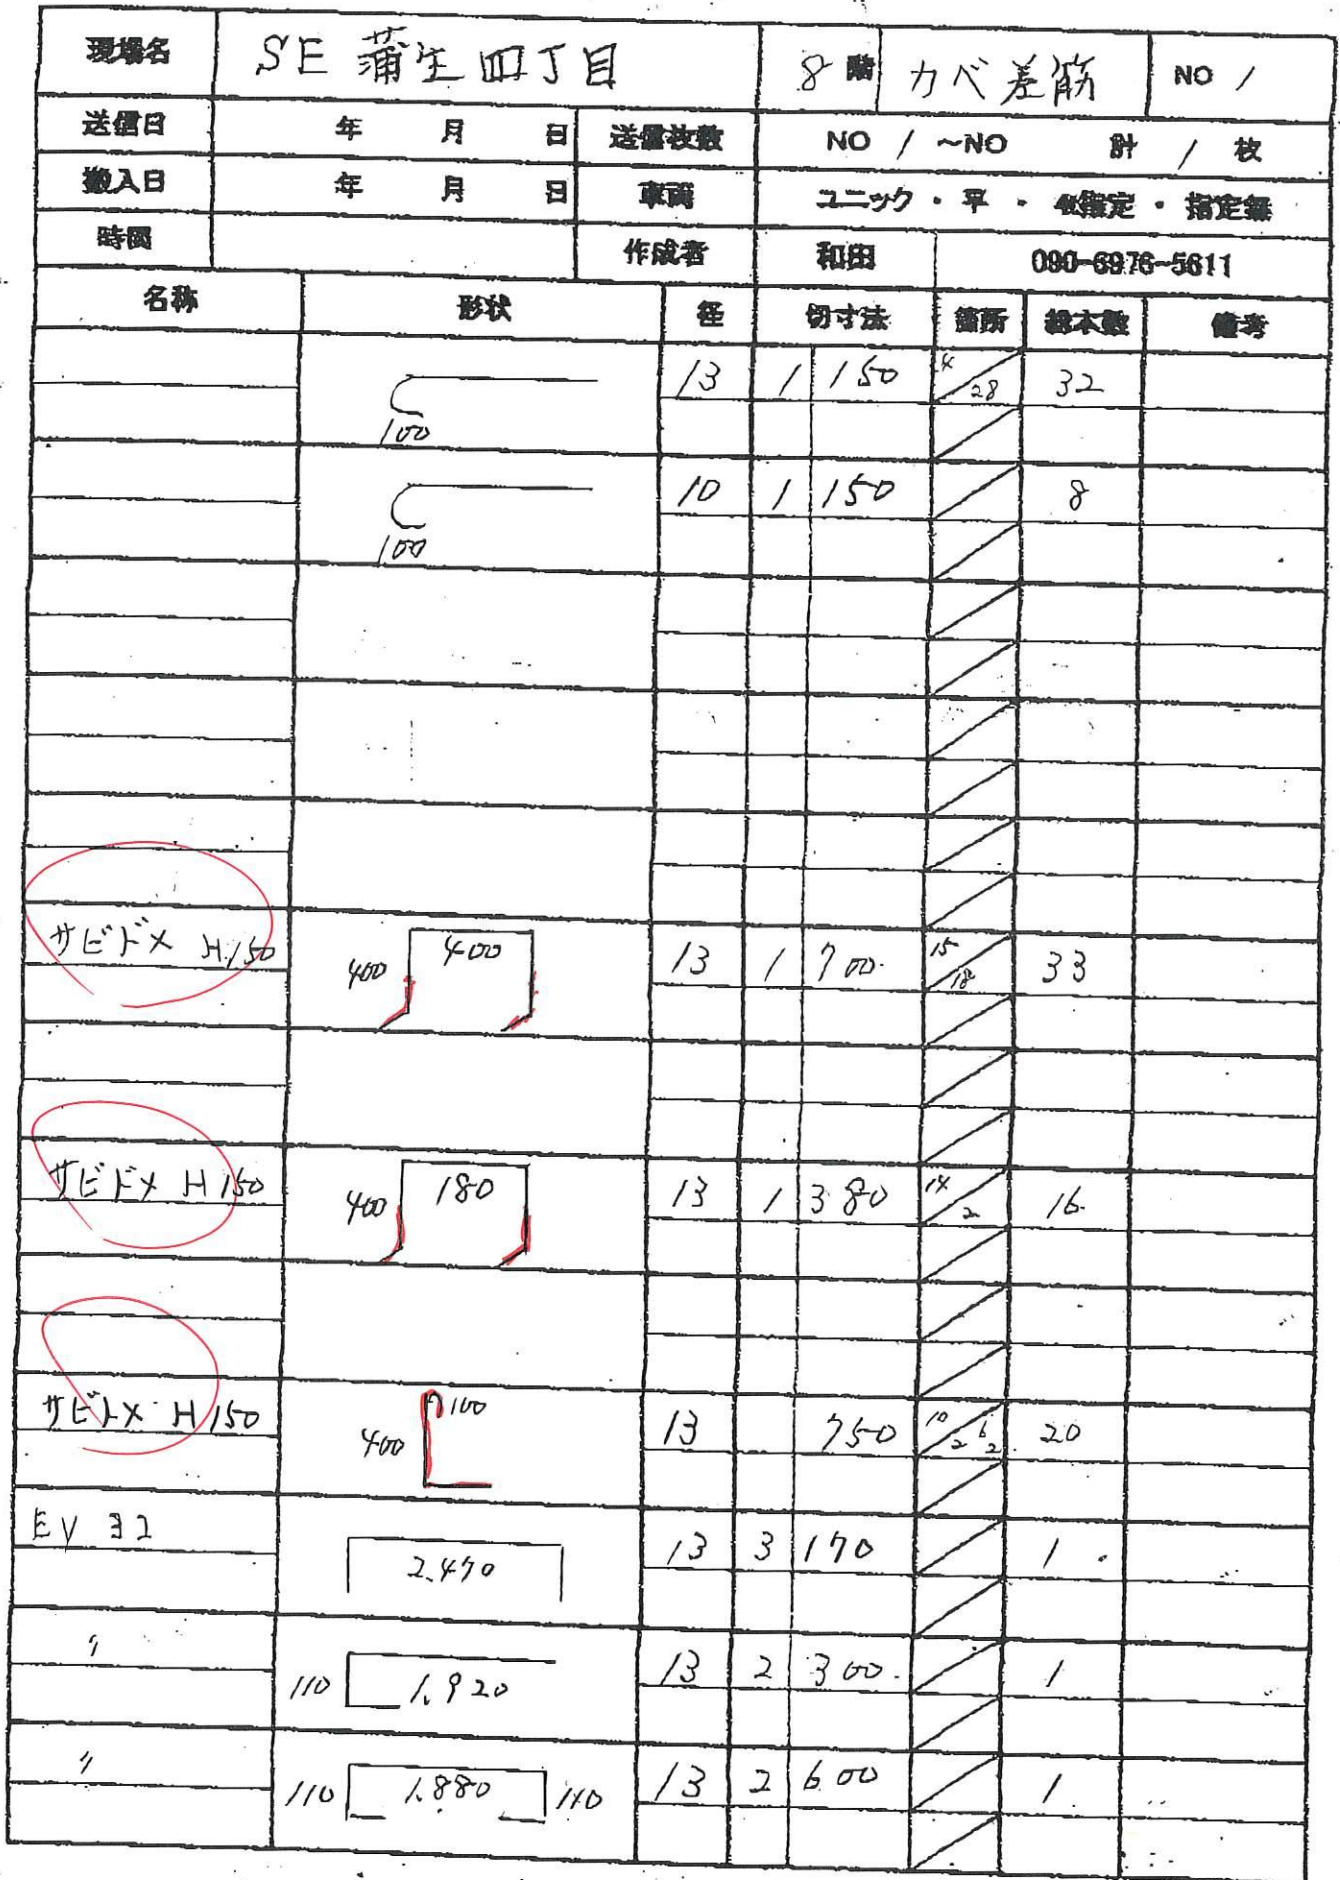 現場名 SE 蒲生四丁目 8 階 カベ差筋 NO 1
送信日 年 月 日 送信枚数 NO 1 ~NO 計 1 枚
搬入日 年 月 日 車両 ユニック・平・4t指定・指定無
時間 作成者 和田 090-6976-5611
名称 形状 径 切寸法 箇所 総本数 備考
100 13 1 150 4/28 32
100 10 1 150 8
サビドメ H150 400 400 13 1 700 15/18 33
サビドメ H150 400 180 13 1 380 14/2 16
サビドメ H150 400 100 13 750 10/2 6 2 20
EV 2.470 13 3 170 1
〃 110 1.920 13 2 300 1
〃 110 1.880 110 13 2 600 1